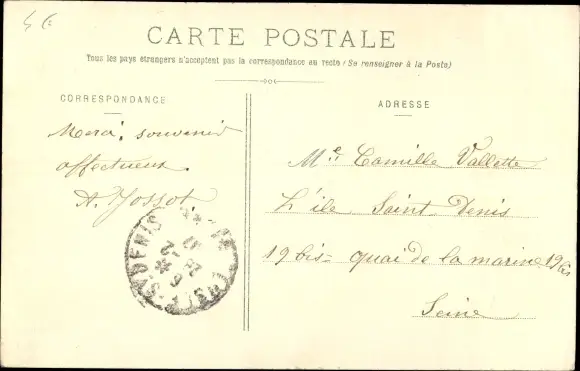 5 €
CARTE POSTALE
Tous les pays étrangers n'acceptent pas la correspondance au recto (Se renseigner à la Poste)
CORRESPONDANCE
Merci, souvenir
affectueux.
A. Jossot
ADRESSE
Me Camille Vallette
L'île Saint Denis
19 bis quai de la marine 19 bis
Seine
ST DENIS